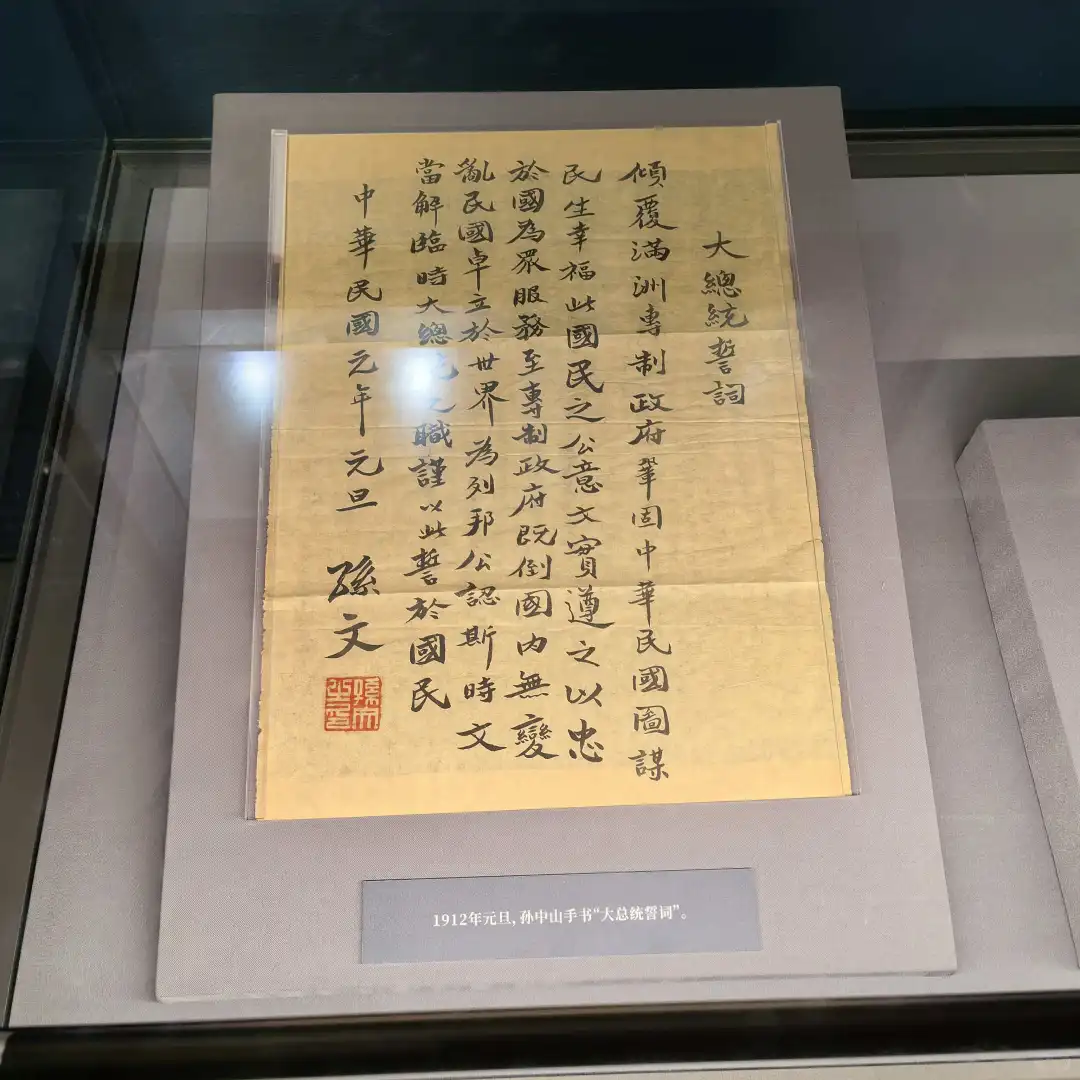 大總統誓詞
傾覆滿洲專制政府鞏固中華民國圖謀
民生幸福此國民之公意文實遵之以忠
於國為眾服務至專制政府既倒國內無變
亂民國卓立於世界為列邦公認斯時文
當解臨時大總統之職謹以此誓於國民
中華民國元年元旦 孫文
孫文之印
1912年元旦,孙中山手书“大总统誓词”。